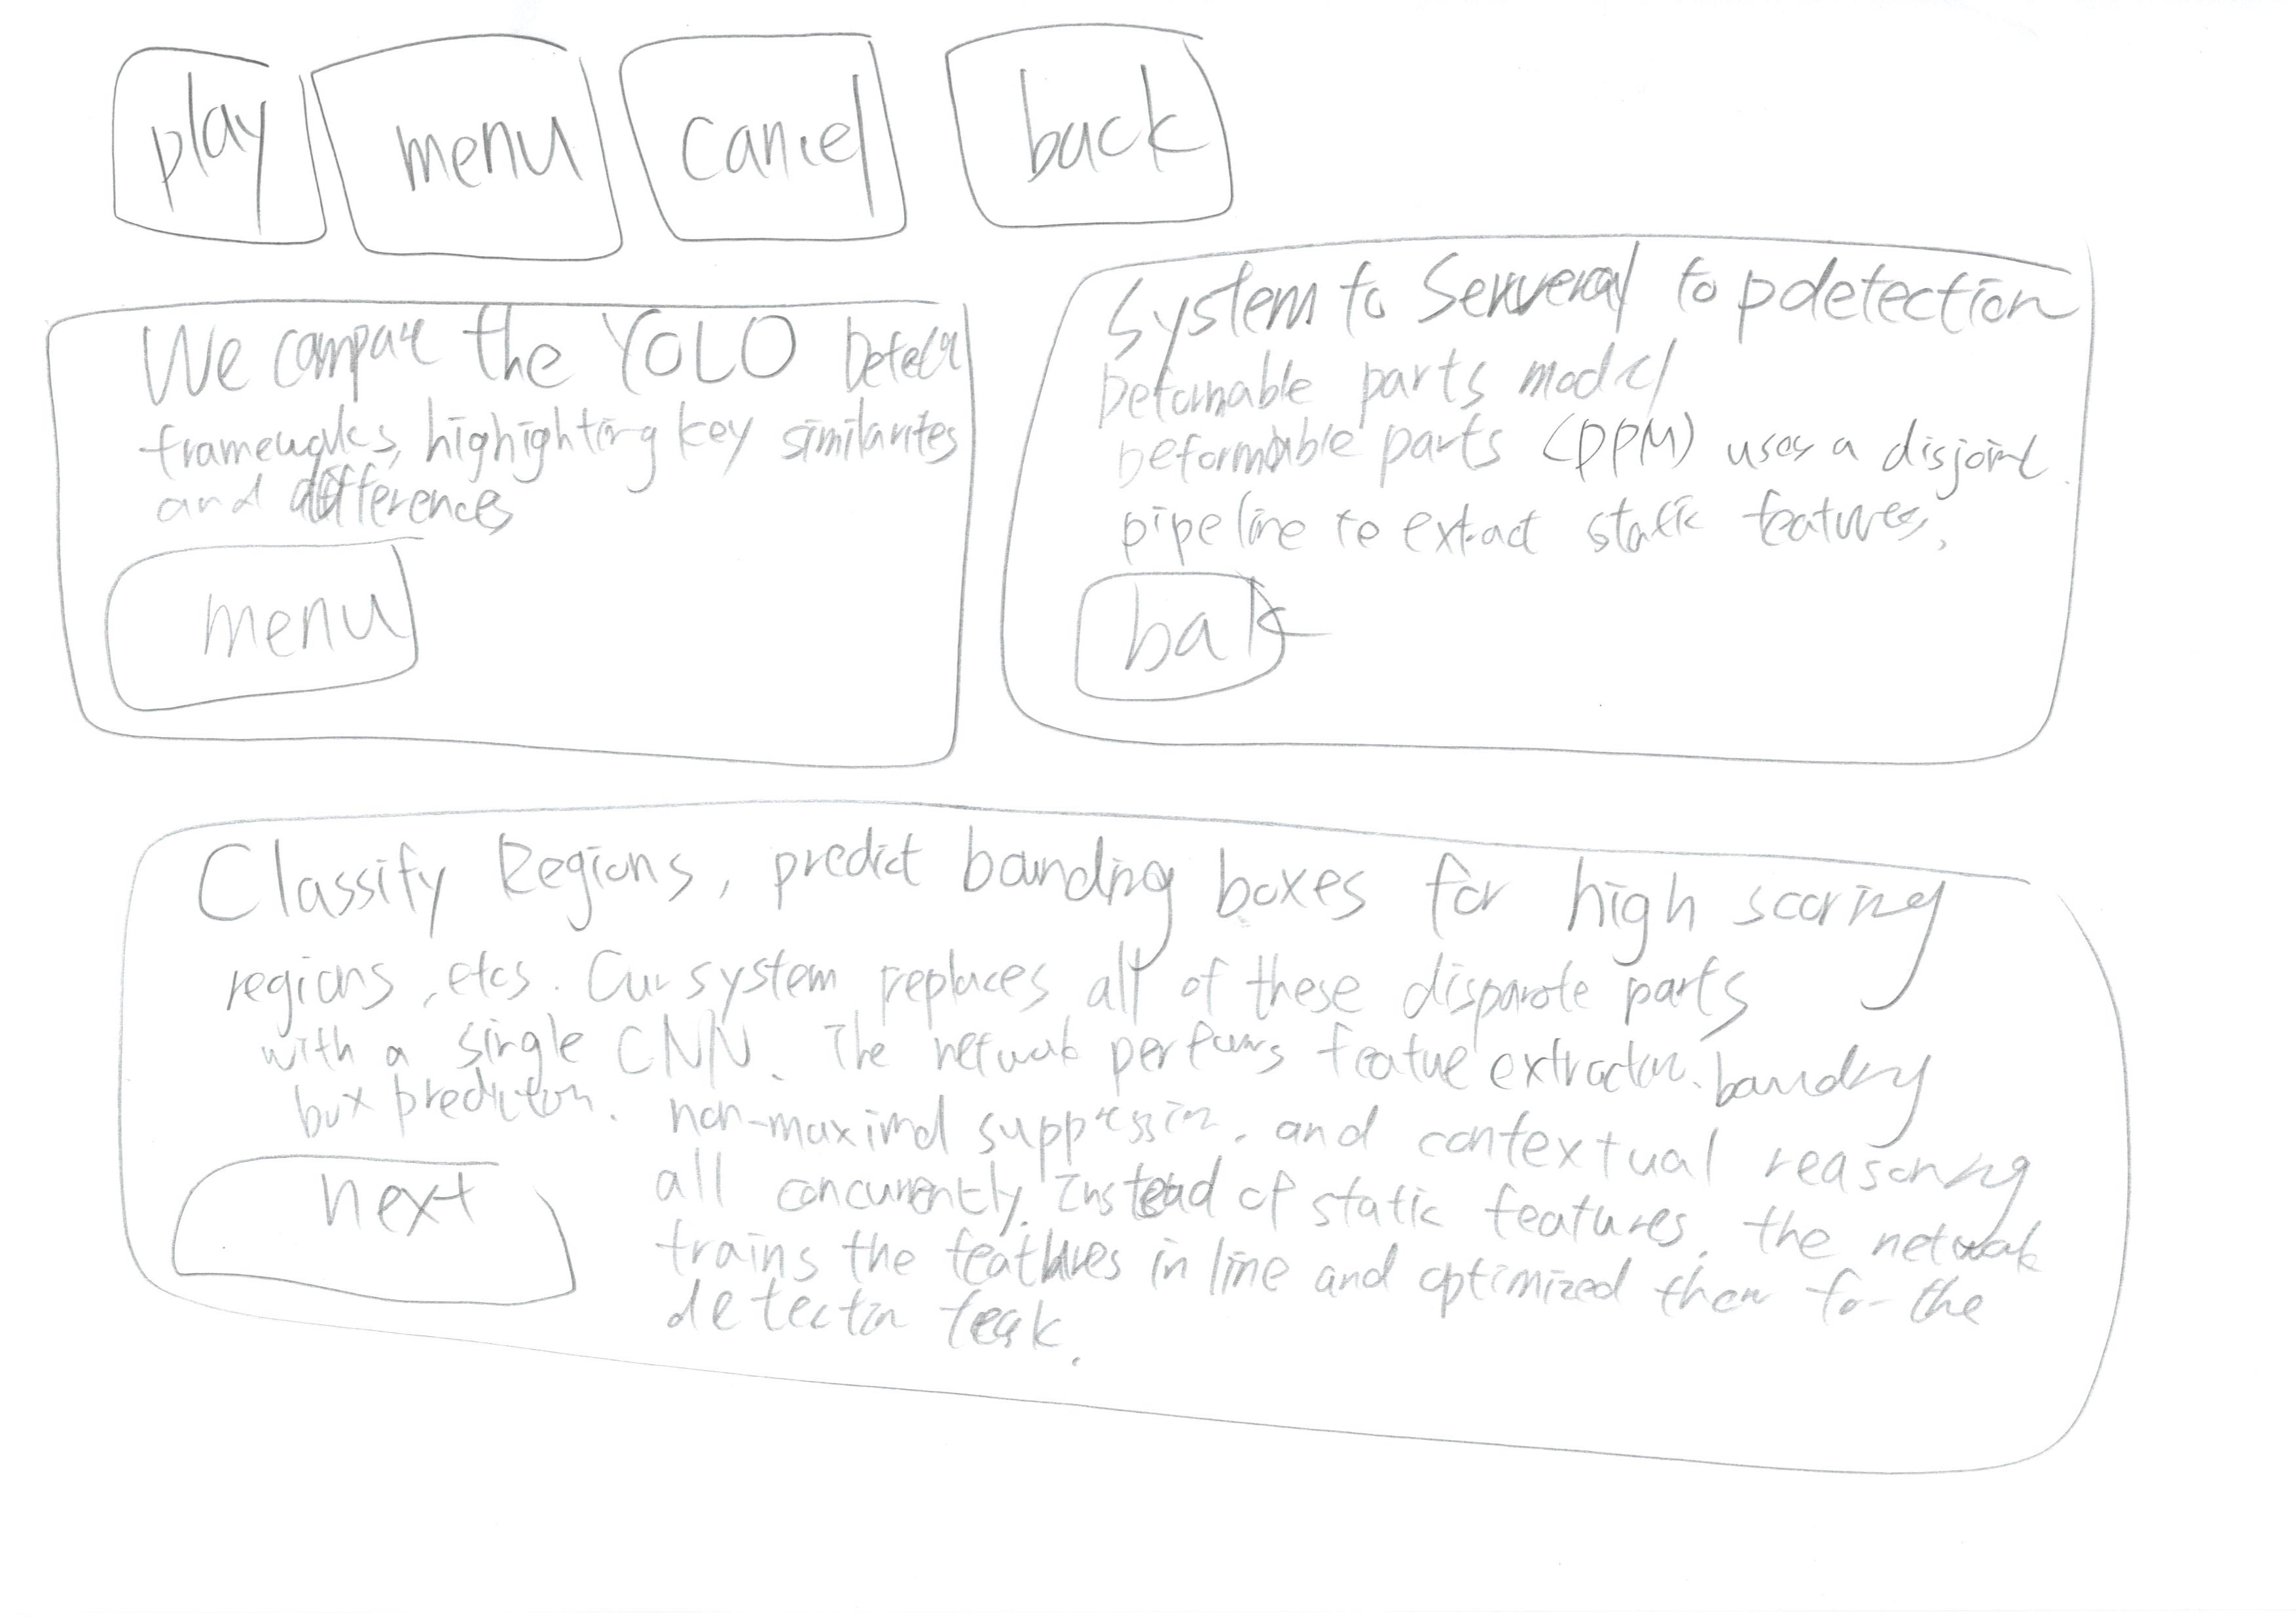 play menu cancel back
We compare the YOLO Detector
frameworks, highighting key similarites
and differences
menu
System to Serveral to pdetection
Deformable parts model
Deformable parts (DPM) uses a disjoint
pipeline to extract static features,
back
Classify Regions, predict bounding boxes for high scoring
regions, etcs. Our system replaces all of these disparate parts
with a single CNN. The network performs feature extraction. bounding
box prediction. non-maximal suppression, and contextual reasoning
next
all concurrently. Instead of static features, the network
trains the features in line and optimized them for the
detection task.